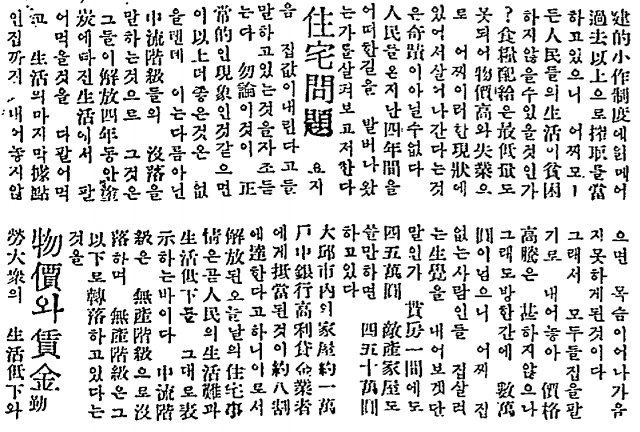 建的小作制度에얽메어
過去以上으로搾取를當
하고있으니 어찌모ー
든人民들의生活이貧困
하지않을수있을것인가
?食糧配給은最低量도
못되어物價高와失業으
로 어찌이러한現狀에
있어서살어나간다는것
은奇蹟이아닐수없다
人民들은지난四年間을
어떠한길을 발버나왔
는가를살펴보고저한다
住宅問題 요지
음 집값이내린다고들
말하고있는것을자조듣
는다 勿論이것이 正
常的인現象인것같으면
이以上더좋은것은 없
을텐데 이는다름아닌
中流階級들의 沒落을
말하는것으로 그것은
그들이解放四年동안塗
炭에빠진生活에서 팔
어먹을것을 다팔어먹
고 生活의마지막據點
인집까지 내어놓지않
으면 목숨이어나가음
지못하게된것이다
그래서 모두들집을팔
기로 내어놓아 價格
高騰은 甚하지않으나
그래도방한간에 數萬
圓이넘으니 어찌 집
없는사람인들 집살려
는生覺을 내어보겠단
말인가 貰房一間에도
四五萬圓 敵産家屋도
할만하면 四五十萬圓
하고있다
大邱市內의家屋約一萬
戶中銀行高利貸金業者
에게抵當된것이約八割
에達한다고하니이로서
解放된오늘날의住宅事
情은곧人民의生活難과
生活低下를 그대로表
示하는바이다 中流階
級은 無産階級으로沒
落하며 無産階級은그
以下로轉落하고있다는
것을
物價와賃金 勤
勞大衆의 生活低下와